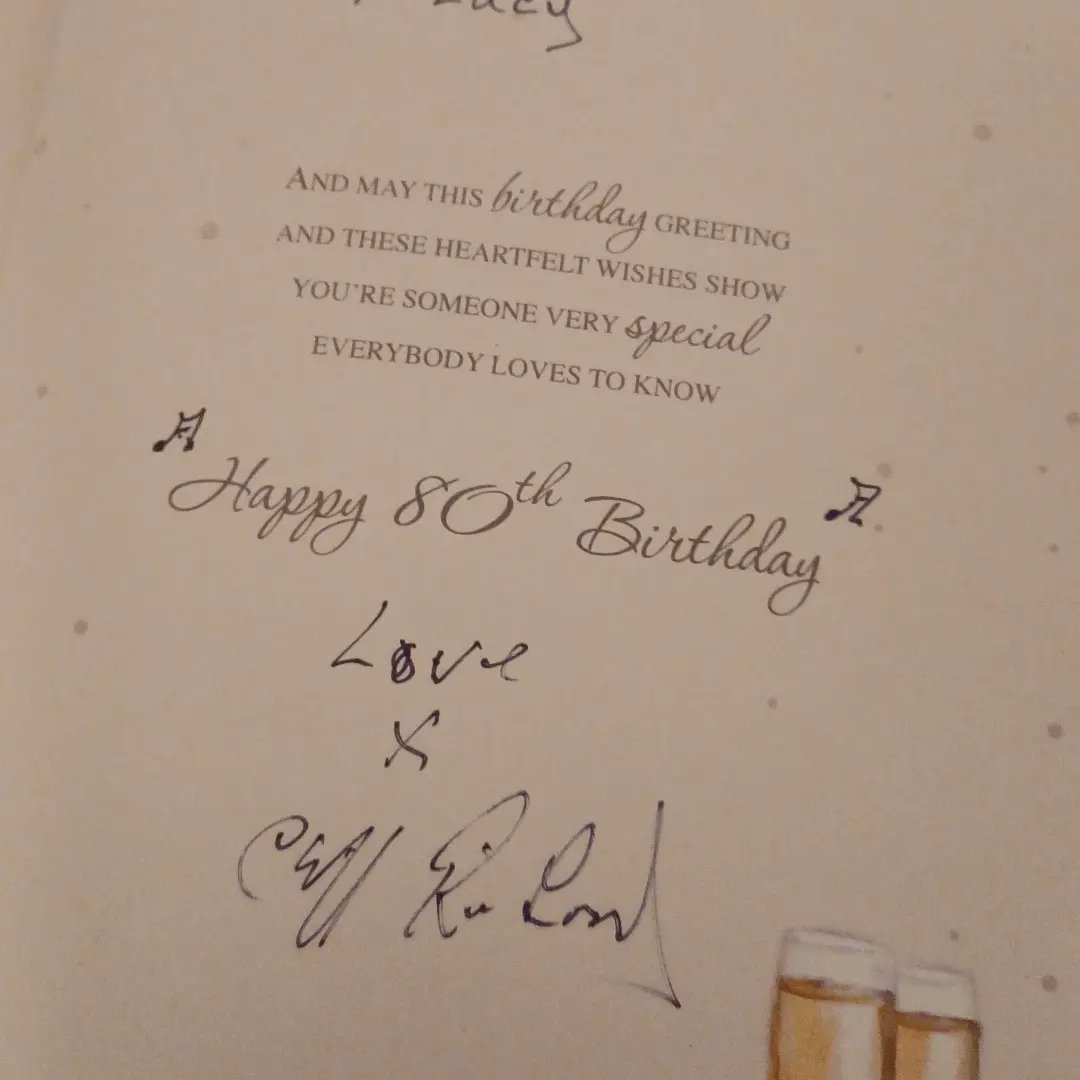 Lucy
AND MAY THIS birthday GREETING
AND THESE HEARTFELT WISHES SHOW
YOU'RE SOMEONE VERY special
EVERYBODY LOVES TO KNOW
Happy 80th Birthday
Love
x
Cliff Richard